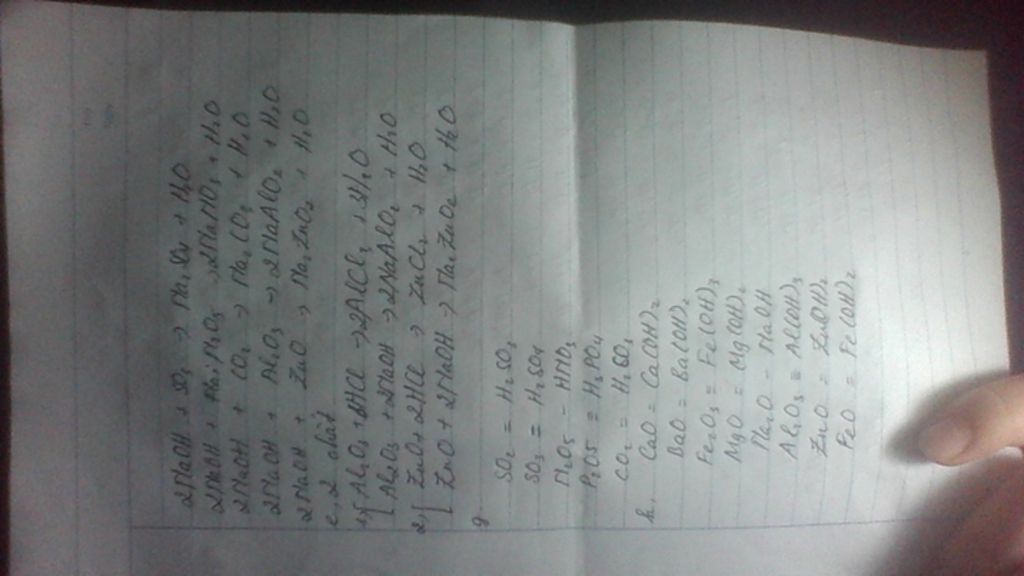 2NaOH + SO₃ → Na₂SO₄ + H₂O
2NaOH + N₂O₅ → 2NaNO₃ + H₂O
2NaOH + CO₂ → Na₂CO₃ + H₂O
2NaOH + Al₂O₃ → 2NaAlO₂ + H₂O
2NaOH + ZnO → Na₂ZnO₂ + H₂O
e, 2 chất
1, [ Al₂O₃ + 6HCl → 2AlCl₃ + 3H₂O
[ Al₂O₃ + 2NaOH → 2NaAlO₂ + H₂O
2, [ ZnO + 2HCl → ZnCl₂ + H₂O
[ ZnO + 2NaOH → Na₂ZnO₂ + H₂O
g
SO₂ = H₂SO₃
SO₃ = H₂SO₄
N₂O₅ - HNO₃
P₂O5 = H₃PO₄
CO₂ = H₂CO₃
h, CaO = Ca(OH)₂
BaO = Ba(OH)₂
Fe₂O₃ = Fe(OH)₃
MgO = Mg(OH)₂
Na₂O - NaOH
Al₂O₃ = Al(OH)₃
ZnO = Zn(OH)₂
FeO = Fe(OH)₂